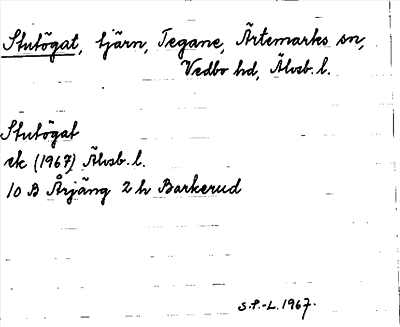 Stutögat, tjärn, Tegane, Ärtemarks sn,
Vedbo hd, Älvsb. l.
Stutögat
ek (1967) Älvsb. l.
10 B Årjäng 2 h Barkerud
S.P.-L. 1967.